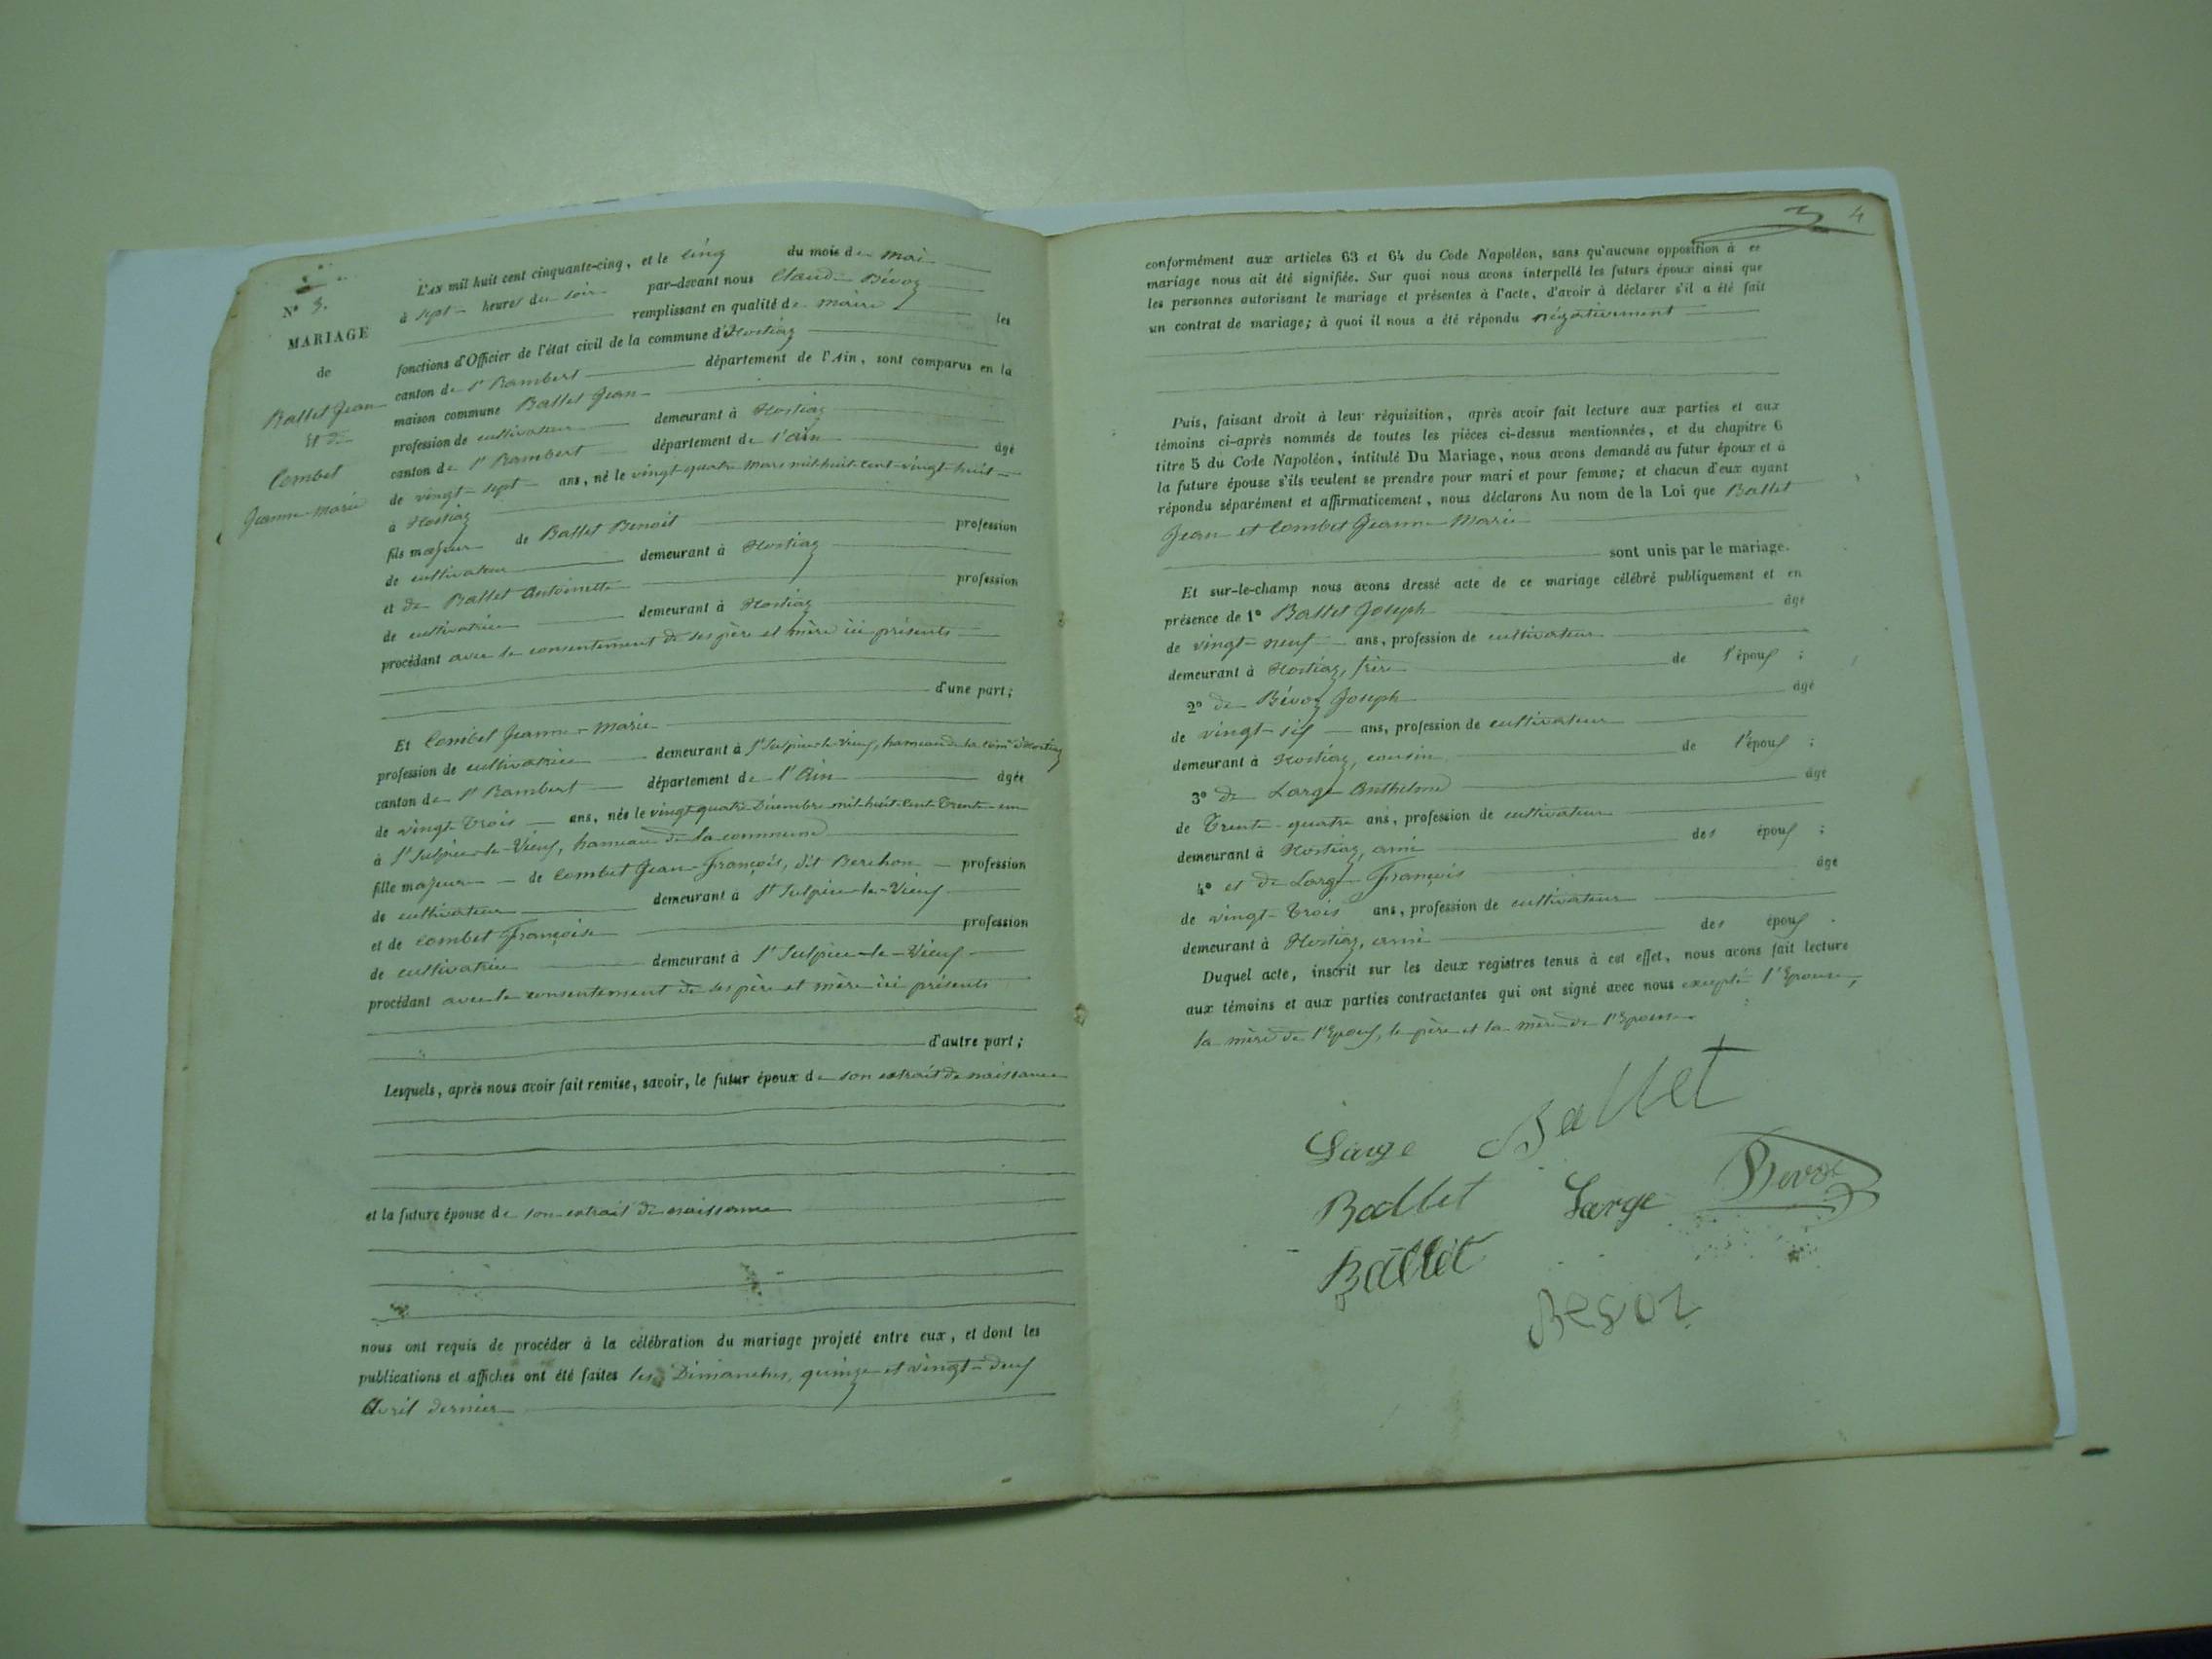 N° 3.
MARIAGE
de
Ballet Jean
Et de
Combet
Jeanne-Marie
L'AN mil huit cent cinquante-cinq, et le cinq du mois de mai
à sept heures du soir par-devant nous Claude Bévoz
remplissant en qualité de maire les
fonctions d'Officier de l'état civil de la commune d'Hostiaz
canton de St Rambert département de l'Ain, sont comparus en la
maison commune Ballet Jean
profession de cultivateur demeurant à Hostiaz
canton de St Rambert département de l'Ain âgé
de vingt-sept ans, né le vingt-quatre Mars mil-huit-cent-vingt-huit
à Hostiaz
fils majeur de Ballet Benoît profession
de cultivateur demeurant à Hostiaz
et de Ballet Antoinette profession
de cultivatrice demeurant à Hostiaz
procédant avec le consentement de ses père et mère ici présents
d'une part;
Et Combet Jeanne-Marie
profession de cultivatrice demeurant à St Sulpice-le-Vieux, hameau de la com d'Hostiaz
canton de St Rambert département de l'Ain âgée
de vingt-trois ans, née le vingt-quatre Décembre mil-huit-cent-trente-un
à St Sulpice-le-Vieux, hameau de la commune
fille majeure de Combet Jean-François, dit Berchon profession
de cultivateur demeurant à St Sulpice-le-Vieux
et de Combet Françoise profession
de cultivatrice demeurant à St Sulpice-le-Vieux
procédant avec le consentement de ses père et mère ici présents
d'autre part;
Lesquels, après nous avoir fait remise, savoir, le futur époux de son extrait de naissance
et la future épouse de son extrait de naissance
nous ont requis de procéder à la célébration du mariage projeté entre eux, et dont les
publications et affiches ont été faites les Dimanches, quinze et vingt-deux
Avril dernier
3 4
conformément aux articles 63 et 64 du Code Napoléon, sans qu'aucune opposition à ce
mariage nous ait été signifiée. Sur quoi nous avons interpellé les futurs époux ainsi que
les personnes autorisant le mariage et présentes à l'acte, d'avoir à déclarer s'il a été fait
un contrat de mariage; à quoi il nous a été répondu négativement
Puis, faisant droit à leur réquisition, après avoir fait lecture aux parties et aux
témoins ci-après nommés de toutes les pièces ci-dessus mentionnées, et du chapitre 6
titre 5 du Code Napoléon, intitulé Du Mariage, nous avons demandé au futur époux et à
la future épouse s'ils veulent se prendre pour mari et pour femme; et chacun d'eux ayant
répondu séparément et affirmativement, nous déclarons Au nom de la Loi que Ballet
Jean et Combet Jeanne-Marie
sont unis par le mariage.
Et sur-le-champ nous avons dressé acte de ce mariage célébré publiquement et en
présence de 1° Ballet Joseph âgé
de vingt-neuf ans, profession de cultivateur
demeurant à Hostiaz, frère de l'époux ;
2° de Bévoz Joseph âgé
de vingt-six ans, profession de cultivateur
demeurant à Hostiaz, cousin de l'époux ;
3° de Large Anthelme âgé
de Trente-quatre ans, profession de cultivateur
demeurant à Hostiaz, ami des époux ;
4° et de Large François âgé
de vingt-trois ans, profession de cultivateur
demeurant à Hostiaz, ami des époux .
Duquel acte, inscrit sur les deux registres tenus à cet effet, nous avons fait lecture
aux témoins et aux parties contractantes qui ont signé avec nous excepté l'Epouse,
la mère de l'Epoux, le père et la mère de l'Epouse.
Large Ballet
Ballet Large Bévoz
Ballet
Bevoz